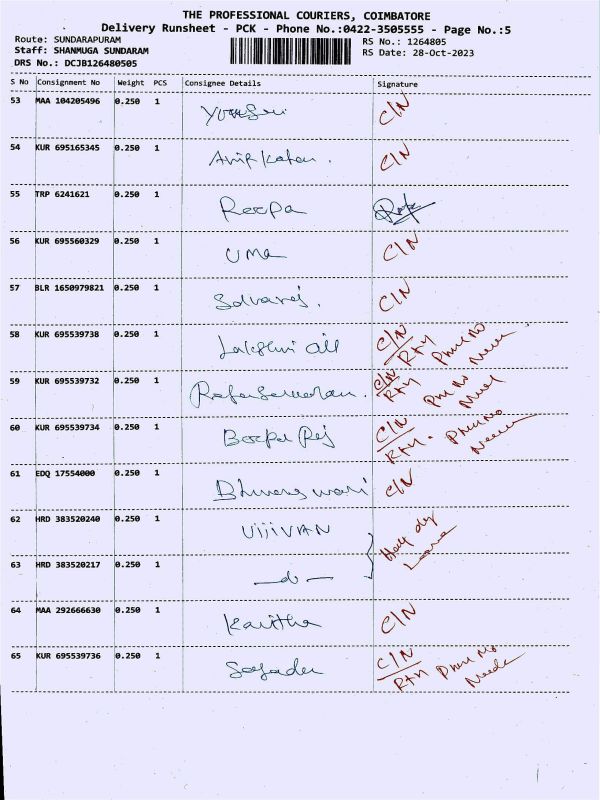 THE PROFESSIONAL COURIERS, COIMBATORE
Delivery Runsheet - PCK - Phone No.:0422-3505555 - Page No.:5
Route: SUNDARAPURAM RS No.: 1264805
Staff: SHANMUGA SUNDARAM RS Date: 28-Oct-2023
DRS No.: DCJB126480505
S No Consignment No Weight PCS Consignee Details Signature
53 MAA 104205496 0.250 1 C/N
54 KUR 695165345 0.250 1 C/N
55 TRP 6241621 0.250 1 Roopa
56 KUR 695560329 0.250 1 UMa C/N
57 BLR 1650979821 0.250 1 Selvaraj. C/N
58 KUR 695539738 0.250 1 Lakshmi C/N
RTN Phone No
59 KUR 695539732 0.250 1 C/N
RTN
60 KUR 695539734 0.250 1 C/N
RTN. Phone No
61 EDQ 17554000 0.250 1 Bhuvaneswari C/N
62 HRD 383520240 0.250 1 UijiVAN Half day
Leave
63 HRD 383520217 0.250 1 —do—
64 MAA 292666630 0.250 1 Kavitha C/N
65 KUR 695539736 0.250 1 C/N
RTN Phone No